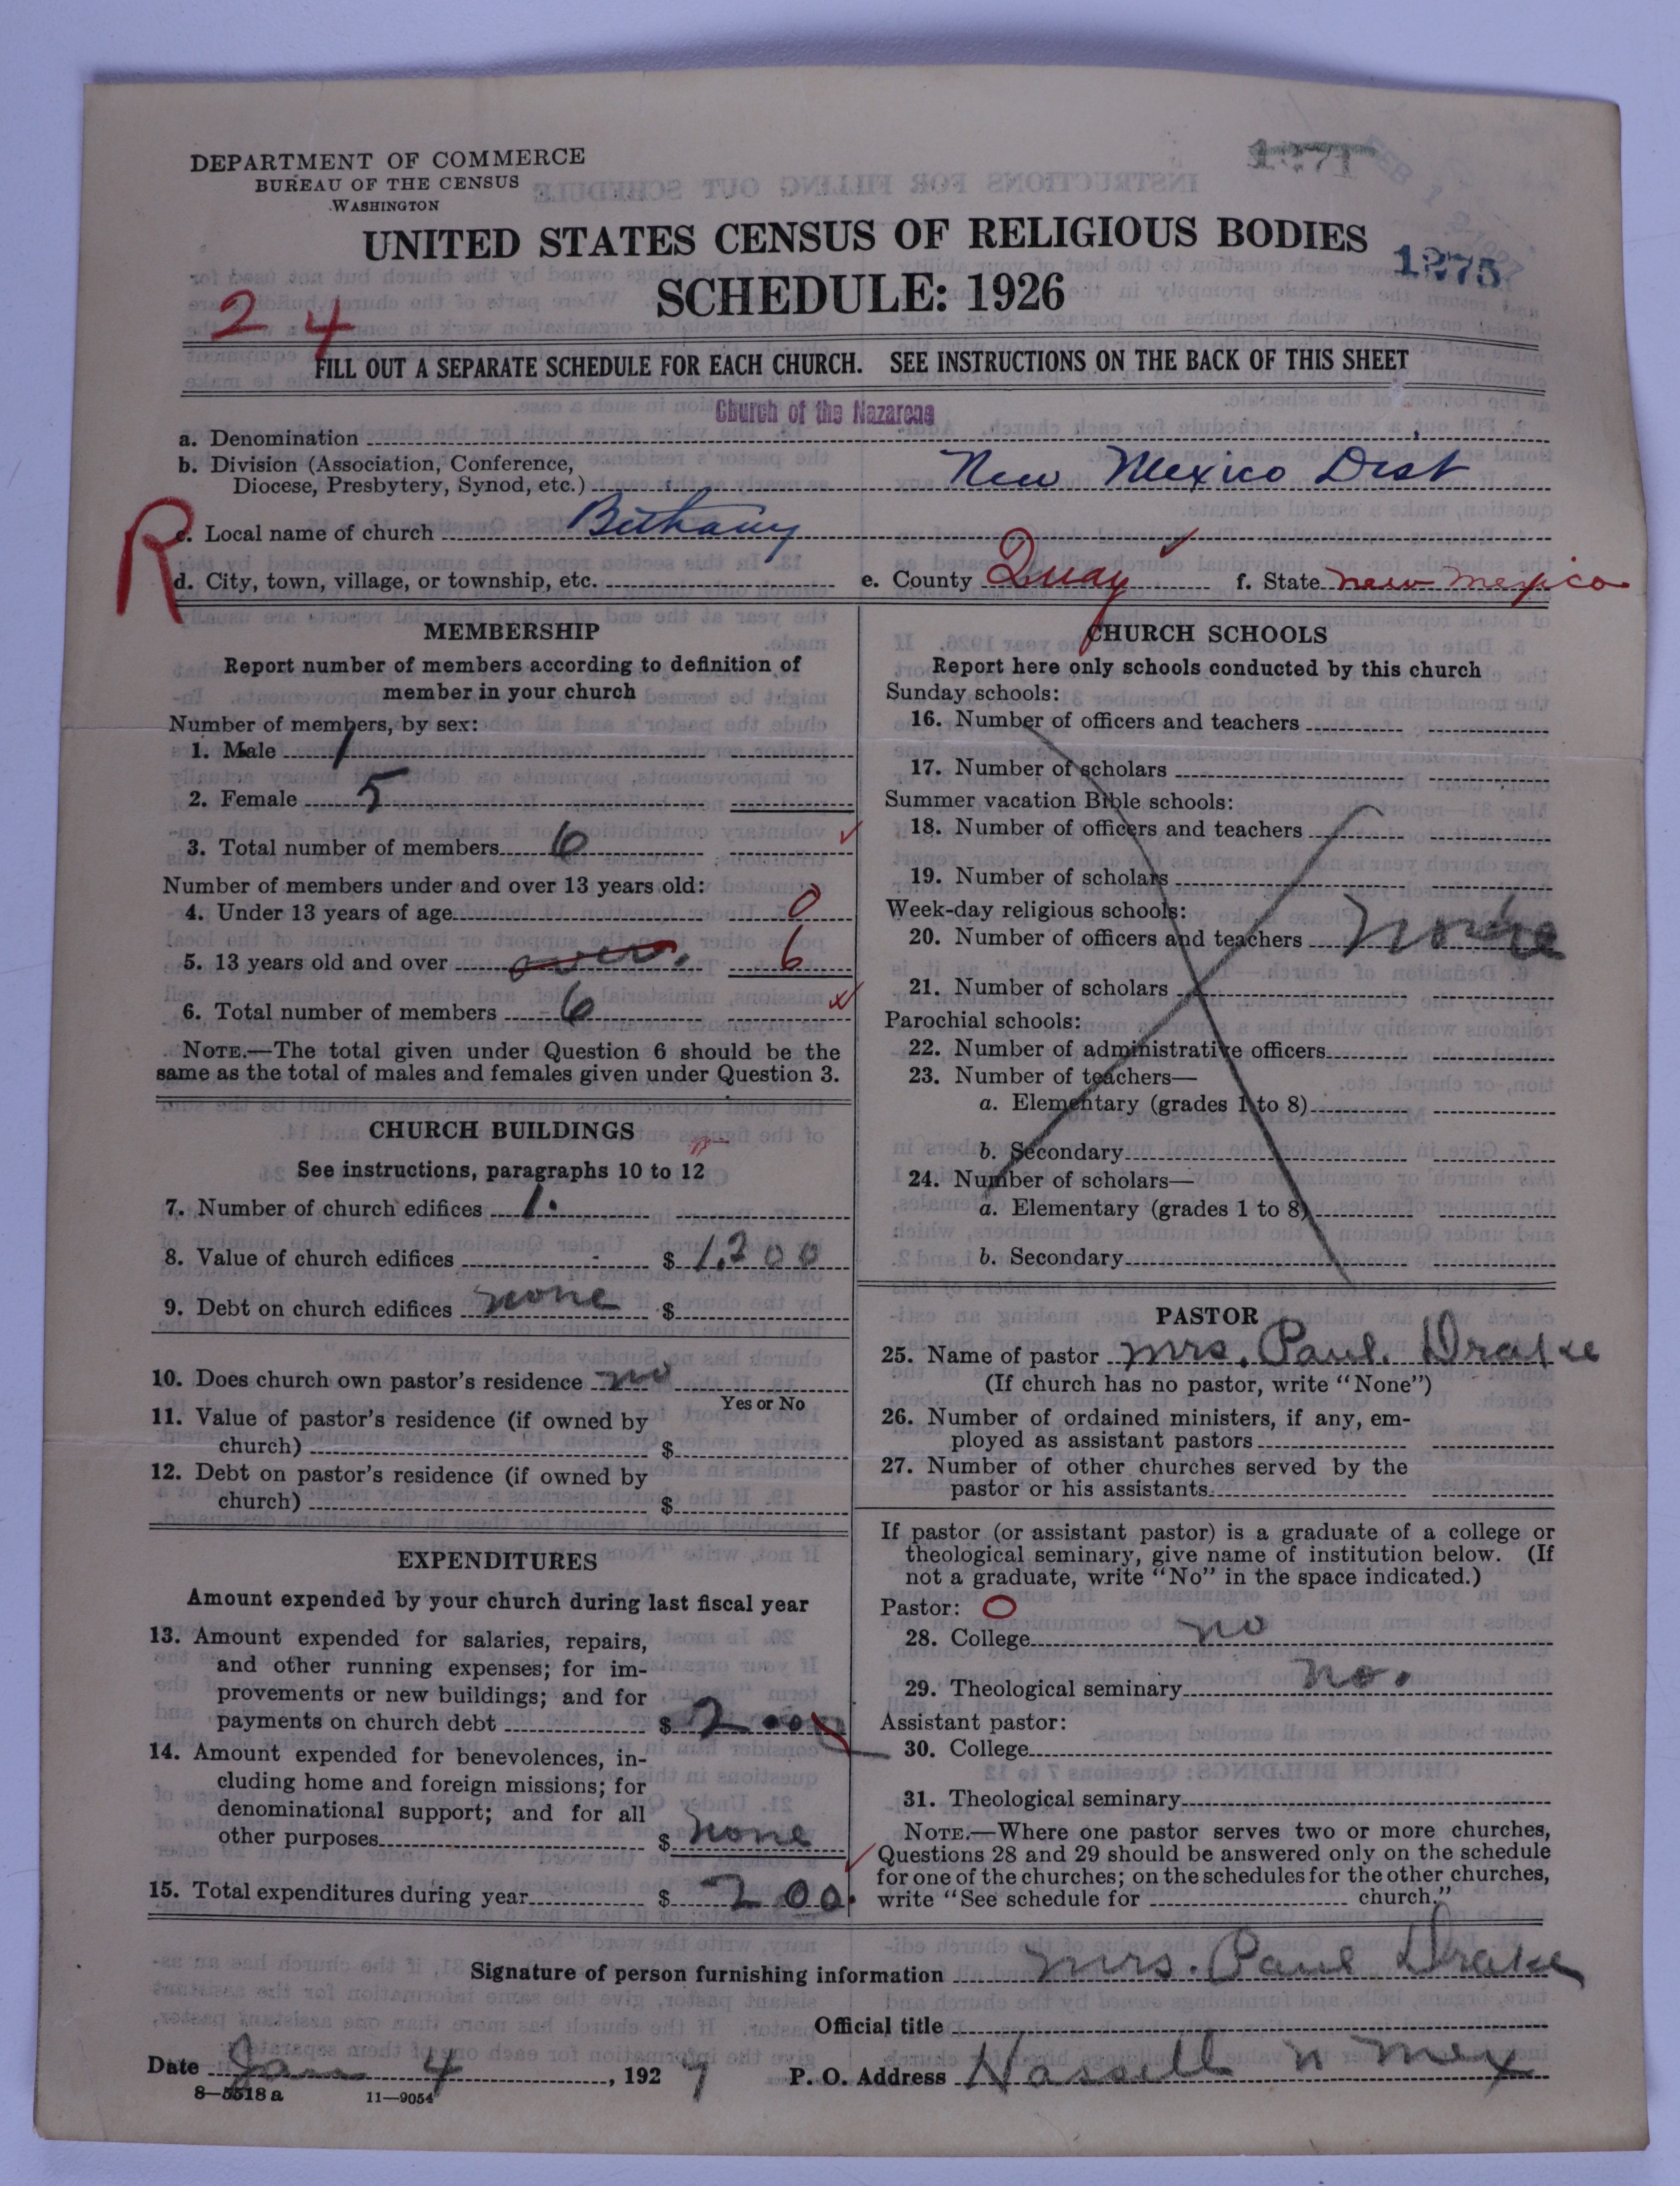 DEPARTMENT OF COMMERCE
BUREAU OF THE CENSUS
WASHINGTON
1271
UNITED STATES CENSUS OF RELIGIOUS BODIES
SCHEDULE: 1926
1275
2 4
FILL OUT A SEPARATE SCHEDULE FOR EACH CHURCH. SEE INSTRUCTIONS ON THE BACK OF THIS SHEET
Church of the Nazarene
a. Denomination
b. Division (Association, Conference,
Diocese, Presbytery, Synod, etc.) New Mexico Dist
R
c. Local name of church Bethany
d. City, town, village, or township, etc. e. County Quay f. State new mexico
MEMBERSHIP
Report number of members according to definition of
member in your church
Number of members, by sex:
1. Male 1
2. Female 5
3. Total number of members 6
Number of members under and over 13 years old:
4. Under 13 years of age 0
5. 13 years old and over over. 6
6. Total number of members 6
NOTE.—The total given under Question 6 should be the
same as the total of males and females given under Question 3.
CHURCH BUILDINGS
See instructions, paragraphs 10 to 12
7. Number of church edifices 1.
8. Value of church edifices $ 1,200
9. Debt on church edifices none $
10. Does church own pastor's residence no
Yes or No
11. Value of pastor's residence (if owned by
church) $
12. Debt on pastor's residence (if owned by
church) $
EXPENDITURES
Amount expended by your church during last fiscal year
13. Amount expended for salaries, repairs,
and other running expenses; for im-
provements or new buildings; and for
payments on church debt $ 2.00
14. Amount expended for benevolences, in-
cluding home and foreign missions; for
denominational support; and for all
other purposes $ none
15. Total expenditures during year $ 2 00.
CHURCH SCHOOLS
Report here only schools conducted by this church
Sunday schools:
16. Number of officers and teachers
17. Number of scholars
Summer vacation Bible schools:
18. Number of officers and teachers
19. Number of scholars
Week-day religious schools:
20. Number of officers and teachers None
21. Number of scholars
Parochial schools:
22. Number of administrative officers
23. Number of teachers—
a. Elementary (grades 1 to 8)
b. Secondary
24. Number of scholars—
a. Elementary (grades 1 to 8)
b. Secondary
PASTOR
25. Name of pastor mrs. Paul. Drake
(If church has no pastor, write "None")
26. Number of ordained ministers, if any, em-
ployed as assistant pastors
27. Number of other churches served by the
pastor or his assistants
If pastor (or assistant pastor) is a graduate of a college or
theological seminary, give name of institution below. (If
not a graduate, write "No" in the space indicated.)
Pastor: O
28. College no
29. Theological seminary no.
Assistant pastor:
30. College
31. Theological seminary
NOTE.—Where one pastor serves two or more churches,
Questions 28 and 29 should be answered only on the schedule
for one of the churches; on the schedules for the other churches,
write "See schedule for church."
Signature of person furnishing information mrs. Paul Drake
Official title
Date Jan 4, 1927 P. O. Address Hassell n mex
8—5518 a 11—9054